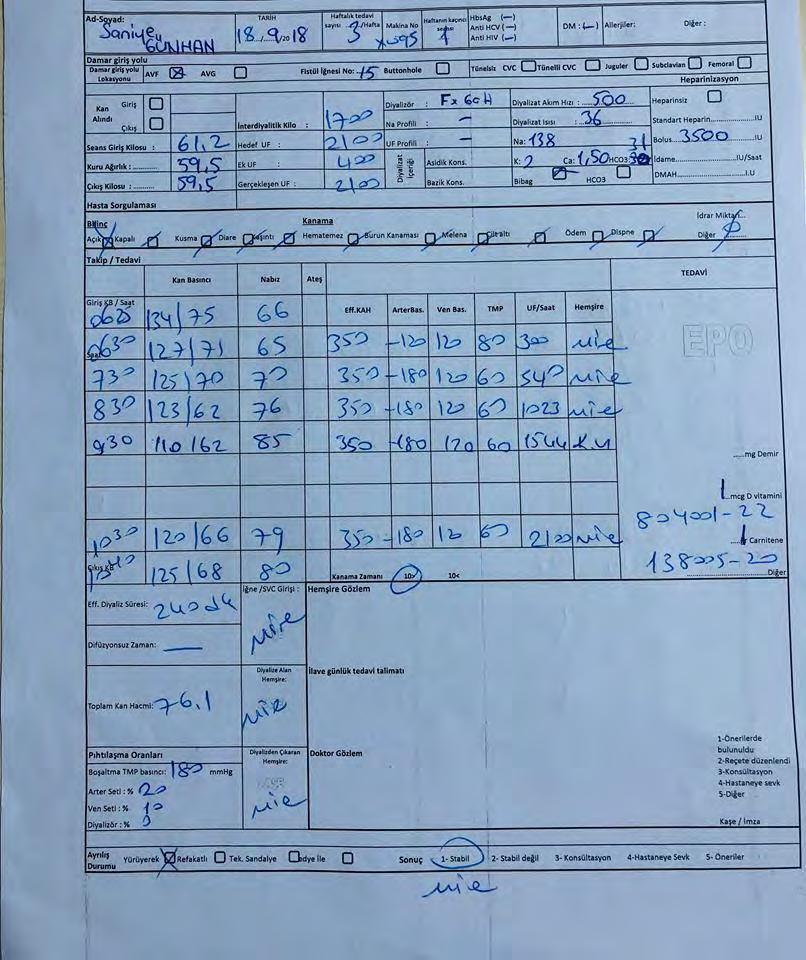 Ad-Soyad: Saniye GÜNHAN
TARİH 18/9/2018
Haftalık tedavi sayısı 3/Hafta
Makina No
Haftanın kaçıncı seansı 1
HbsAg (—)
Anti HCV (—)
Anti HIV (—)
DM : (—) Allerjiler: Diğer :
Damar giriş yolu
Damar giriş yolu Lokasyonu AVF AVG Fistül İğnesi No: 15 Buttonhole Tünelsiz CVC Tünelli CVC Juguler Subclavian Femoral
Heparinizasyon
Kan Alındı Giriş
Çıkış
İnterdiyalitik Kilo : 1700
Diyalizör : Fx 60H
Diyalizat Akım Hızı : 500
Heparinsiz
Na Profili : —
Diyalizat Isısı : 36
Standart Heparin IU
Seans Giriş Kilosu : 61,2
Hedef UF : 2100
UF Profili : —
Na: 138
31
Bolus 3500 IU
Kuru Ağırlık : 59,5
Ek UF : 400
Diyalizat İçeriği
Asidik Kons.
K: 2 Ca: 1,50 HCO3
İdame IU/Saat
Çıkış Kilosu : 59,5
Gerçekleşen UF : 2100
Bazik Kons.
Bibag HCO3
DMAH I.U
Hasta Sorgulaması
Bilinç Kanama İdrar Miktarı
Açık Kapalı Kusma Diare Kaşıntı Hematemez Burun Kanaması Melena Ciltaltı Ödem Dispne Diğer
Takip / Tedavi
Kan Basıncı Nabız Ateş TEDAVİ
Giriş KB / Saat
Eff.KAH ArterBas. Ven Bas. TMP UF/Saat Hemşire
0625 134/75 66
0630 127/71 65 350 -120 120 80 300
EPO
730 125/70 70 350 -180 120 60 540
830 123/62 76 350 -180 120 60 1023
930 110/62 85 350 -180 120 60 1544
mg Demir
mcg D vitamini
804001-22
1030 120/66 79 350 -180 120 60 2100
Carnitene
138005-20
Diğer
Çıkış KB 125/68 80
Kanama Zamanı 10> 10<
Eff. Diyaliz Süresi: 240 dk
İğne /SVC Girişi :
Hemşire Gözlem
Difüzyonsuz Zaman: —
Toplam Kan Hacmi: 76,1
Diyalize Alan Hemşire:
İlave günlük tedavi talimatı
Pıhtılaşma Oranları
Diyalizden Çıkaran Hemşire:
Doktor Gözlem
Boşaltma TMP basıncı: 180 mmHg
Arter Seti : % 20
Ven Seti : % 10
Diyalizör : %
1-Önerilerde bulunuldu
2-Reçete düzenlendi
3-Konsültasyon
4-Hastaneye sevk
5-Diğer
Kaşe / İmza
Ayrılış Durumu Yürüyerek Refakatlı Tek. Sandalye Sedye ile Sonuç 1- Stabil 2- Stabil değil 3- Konsültasyon 4-Hastaneye Sevk 5- Öneriler